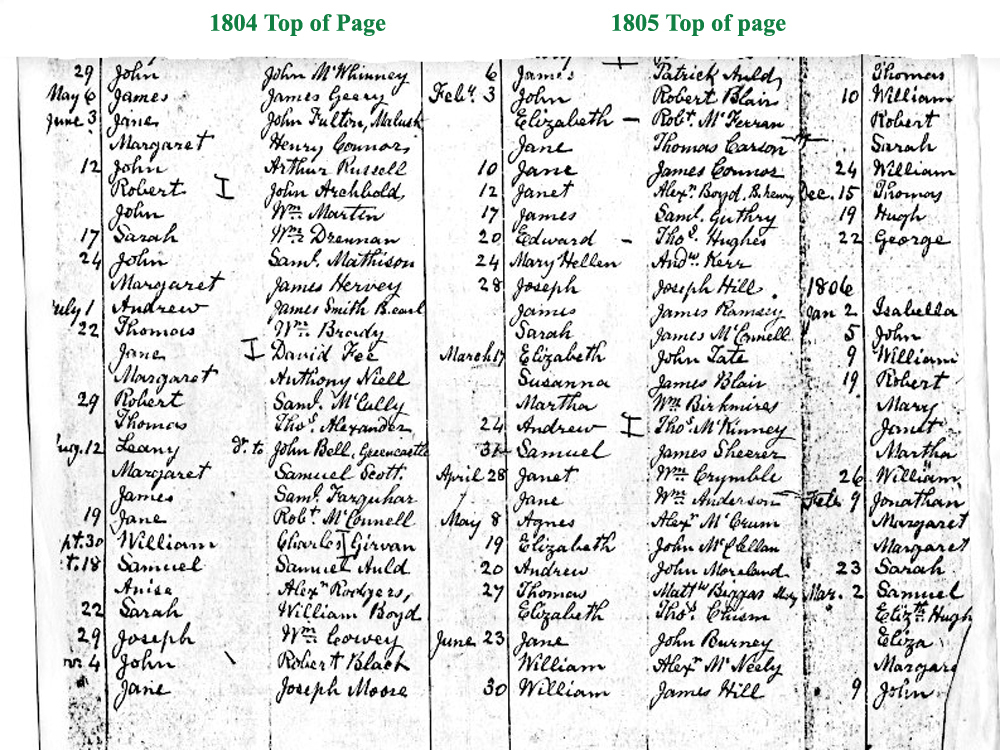 1804 Top of Page
1805 Top of page
29 John John McWhinney
May 6 James James Geery
June 3 Jane John Fulton, Malusk
Margaret Henry Connors
12 John Arthur Russell
Robert I John Archbold,
John Wm Martin
17 Sarah Wm Drennan
24 John Saml. Mathison
Margaret James Hervey
July 1 Andrew James Smith B.earl
22 Thomas Wm Brady
Jane I David Fee
Margaret Anthony Niell
29 Robert Saml. McCully
Thomas Thos. Alexander
Aug. 12 Leany dr. to John Bell, Greencastle
Margaret Samuel Scott.
James Saml. Farquhar
19 Jane Robt. McConnell
pt. 30 William Charles Girvan
t. 18 Samuel Samuel Auld
Anise Alexr Rodgers,
22 Sarah William Boyd
29 Joseph Wm Cowey
4 John Robert Black
Jane Joseph Moore
6 James Patrick Auld,
Feby. 3 John Robert Blair
Elizabeth – Robt. McFerran
Jane Thomas Carson
10 Jane James Connor
12 Janet Alexr Boyd, B.henry
17 James Saml. Guthry
20 Edward – Thos. Hughes
24 Mary Hellen Andw. Kerr
28 Joseph Joseph Hill.
James James Ramsey
Sarah James McConnell
March 17 Elizabeth John Tate
Susanna James Blair
Martha Wm Birkmires
24 Andrew I Thos. McKinney
31 Samuel James Sheerer
April 28 Janet Wm Crymble
Jane Wm Anderson
May 8 Agnes Alexr McCrum
19 Elizabeth John McClellan
20 Andrew John Moreland
27 Thomas Mattw Biggar
Elizabeth Thos. Chism
June 23 Jane John Burney
William Alexr McNeely
30 William James Hill
Thomas
10 William
Robert
Sarah
24 William
Dec. 15 Thomas
19 Hugh
22 George
1806
Jan 2 Isabella
5 John
9 William
19 Robert
Mary
Janet
Martha
26 William
Feb. 9 Jonathan
Margaret
Margaret
23 Sarah
Mar. 2 Samuel
Elizth Hugh
Eliza
Margare
9 John